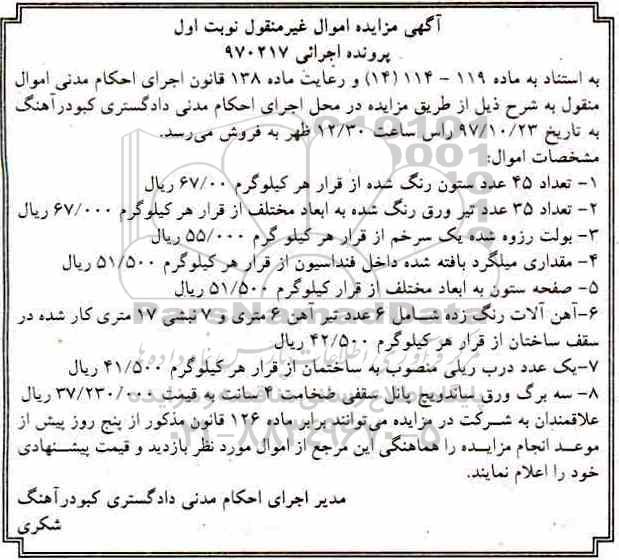 آگهی مزایده اموال غیرمنقول نوبت اول
پرونده اجرائی ۹۷۰۲۱۷
به استناد به ماده ۱۱۹ – ۱۱۴ (۱۴) و رعایت ماده ۱۳۸ قانون اجرای احکام مدنی اموال
منقول به شرح ذیل از طریق مزایده در محل اجرای احکام مدنی دادگستری کبودرآهنگ
به تاریخ ۹۷/۱۰/۲۳ راس ساعت ۱۲/۳۰ ظهر به فروش می‌رسد.
مشخصات اموال:
۱- تعداد ۴۵ عدد ستون رنگ شده از قرار هر کیلوگرم ۶۷/۰۰ ریال
۲- تعداد ۳۵ عدد تیر ورق رنگ شده به ابعاد مختلف از قرار هر کیلوگرم ۶۷/۰۰۰ ریال
۳- بولت رزوه شده یک سرخم از قرار هر کیلو گرم ۵۵/۰۰۰ ریال
۴- مقداری میلگرد بافته شده داخل فنداسیون از قرار هر کیلوگرم ۵۱/۵۰۰ ریال
۵- صفحه ستون به ابعاد مختلف از قرار کیلوگرم ۵۱/۵۰۰ ریال
۶-آهن آلات رنگ زده شامل ۶ عدد تیر آهن ۶ متری و ۷ نبشی ۱۷ متری کار شده در
سقف ساختان از قرار هر کیلوگرم ۴۲/۵۰۰ ریال
۷-یک عدد درب ریلی منصوب به ساختمان از قرار هر کیلوگرم ۴۱/۵۰۰ ریال
۸- سه برگ ورق ساندویچ پانل سقفی ضخامت ۴ سانت به قیمت ۳۷/۲۳۰/۰۰۰ ریال
علاقمندان به شرکت در مزایده می‌توانند برابر ماده ۱۲۶ قانون مذکور از پنج روز پیش از
موعد انجام مزایده را هماهنگی این مرجع از اموال مورد نظر بازدید و قیمت پیشنهادی
خود را اعلام نمایند.
مدیر اجرای احکام مدنی دادگستری کبودرآهنگ
شکری
ParsNamadData
۰۲۱-۸۸۳۴۹۶۷۰-۵